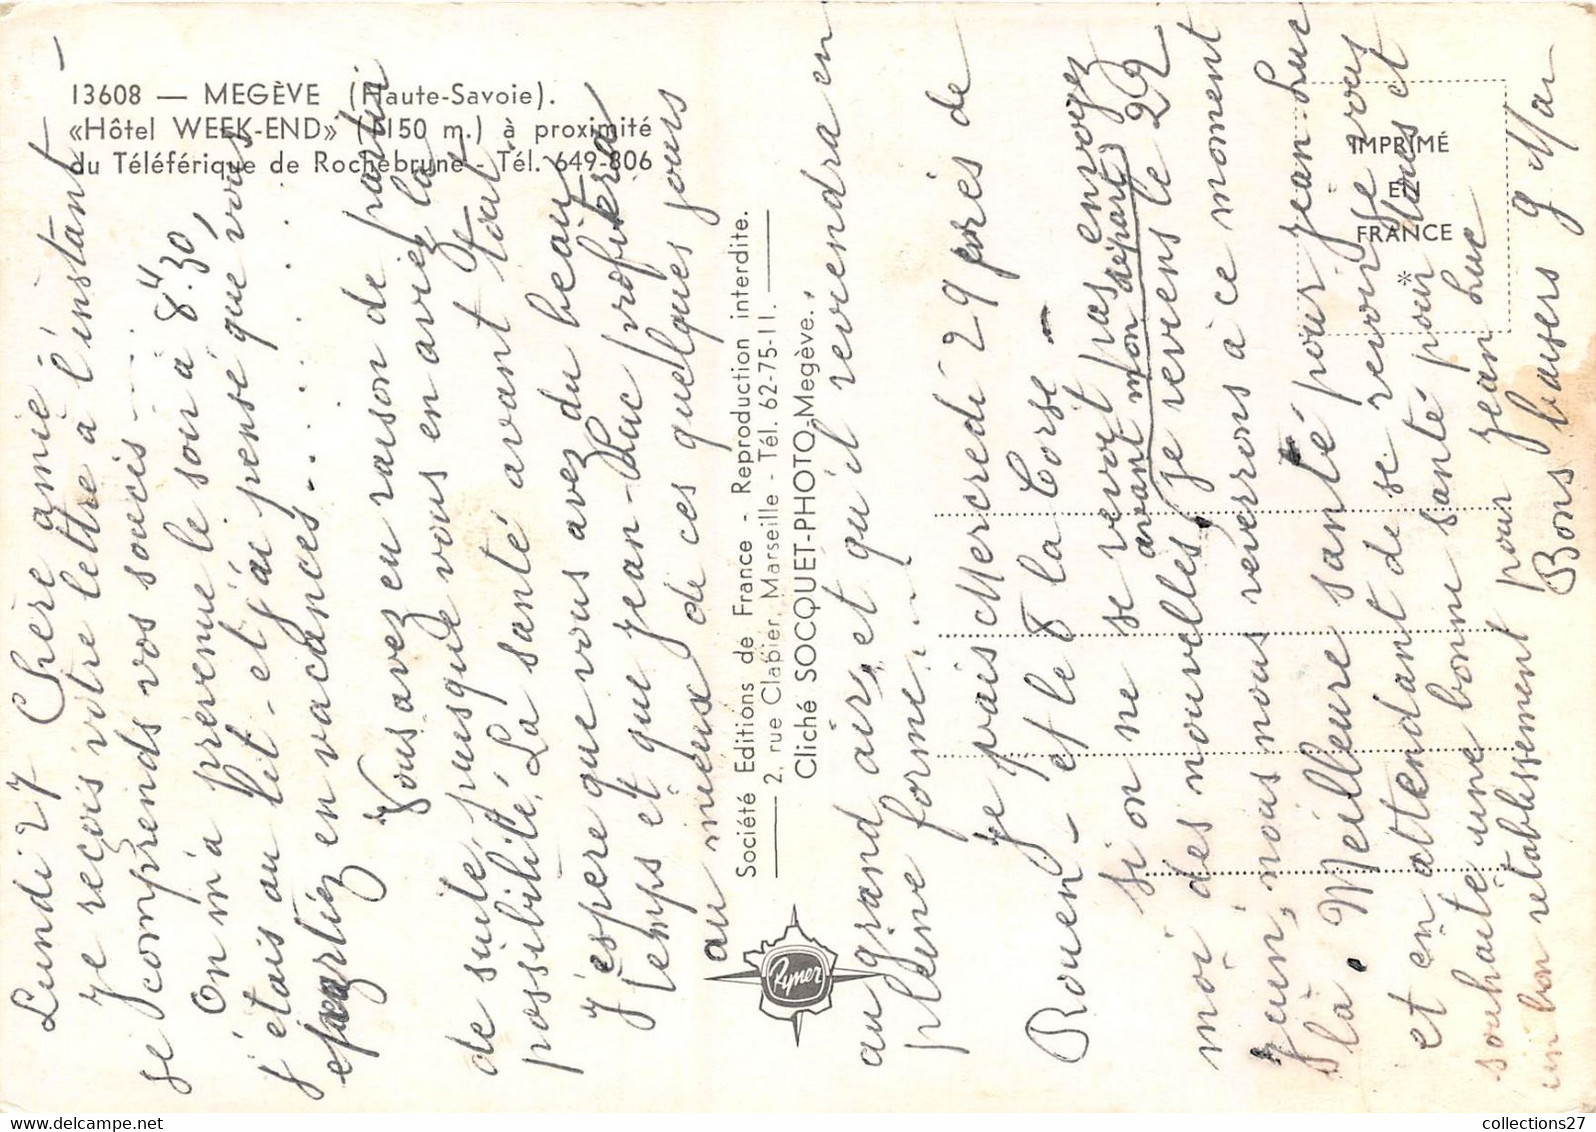 13608 — MEGÈVE (Haute-Savoie).
«Hôtel WEEK-END» (1150 m.) à proximité
du Téléférique de Rochebrune - Tél. 649-806
Société Editions de France - Reproduction interdite.
2, rue Clapier, Marseille - Tél. 62-75-11.
Cliché SOCQUET-PHOTO-Megève.
Ryner
IMPRIMÉ
EN
FRANCE
*
Lundi 27 Chère amie -
Je reçois votre lettre à l'instant -
je comprends vos soucis -
On m'a prévenue le soir à 8h.30,
j'étais au lit - et j'ai pensé que vous
parliez en vacances . . . . . . .
Vous avez eu raison de partir
de suite, puisque vous en aviez la
possibilité. La santé avant tout
J'espère que vous avez du beau
temps et que Jean-Luc profitera
au mieux de ces quelques jours
au grand air, et qu'il reviendra en
pleine forme. -
Je pars Mercredi 29 près de
Rouen - et le 8 la Corse -
Si on ne se revoit pas envoyez
avant mon départ
moi des nouvelles, je reviens le 29
Juin, nous nous reverrons à ce moment
là. Meilleure santé pour Jean-Luc
et en attendant de se revoir je vous
souhaite une bonne santé pour tous et
un bon rétablissement pour Jean Luc
Bons baisers g Mar
collections27